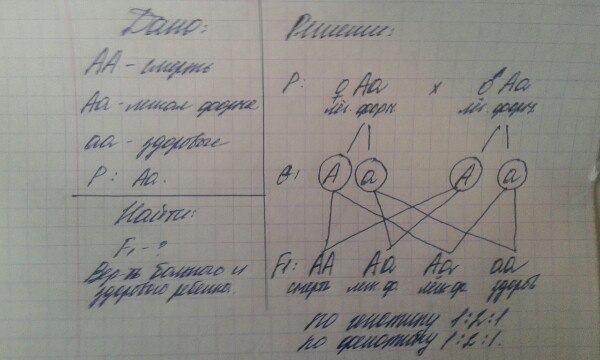 Дано:
АА - смерть
Аа - легкая форма
аа - здоровые
Р: Аа.
Найти:
F₁ - ?
Вер-ть больного и
здорового ребенка.
Решение:
Р: ♀ Аа х ♂ Аа
лег. форм лег. форм
G: А а А а
F₁: АА Аа Аа аа
смерть лег. ф. лег. ф. здоров
по генотипу 1:2:1
по фенотипу 1:2:1.